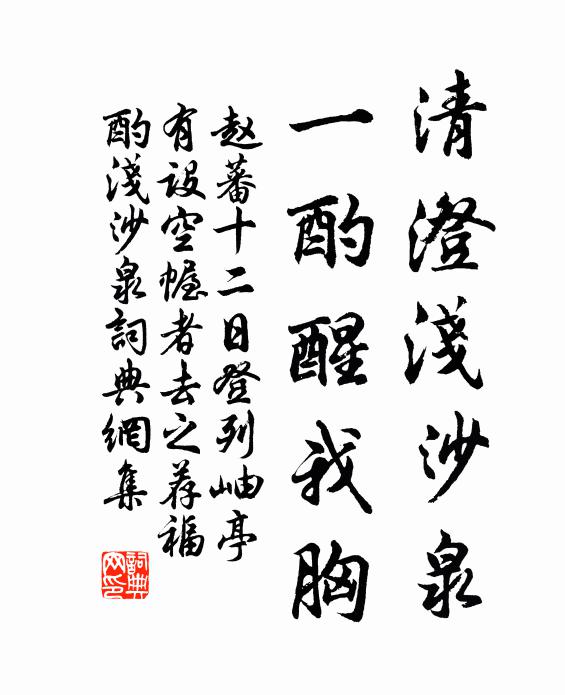 清澄淺沙泉
一酌醒我胸
赵蕃十二日登列岫亭
有设空幄者去之荐福
酌淺沙泉詞典網集
詞典网印